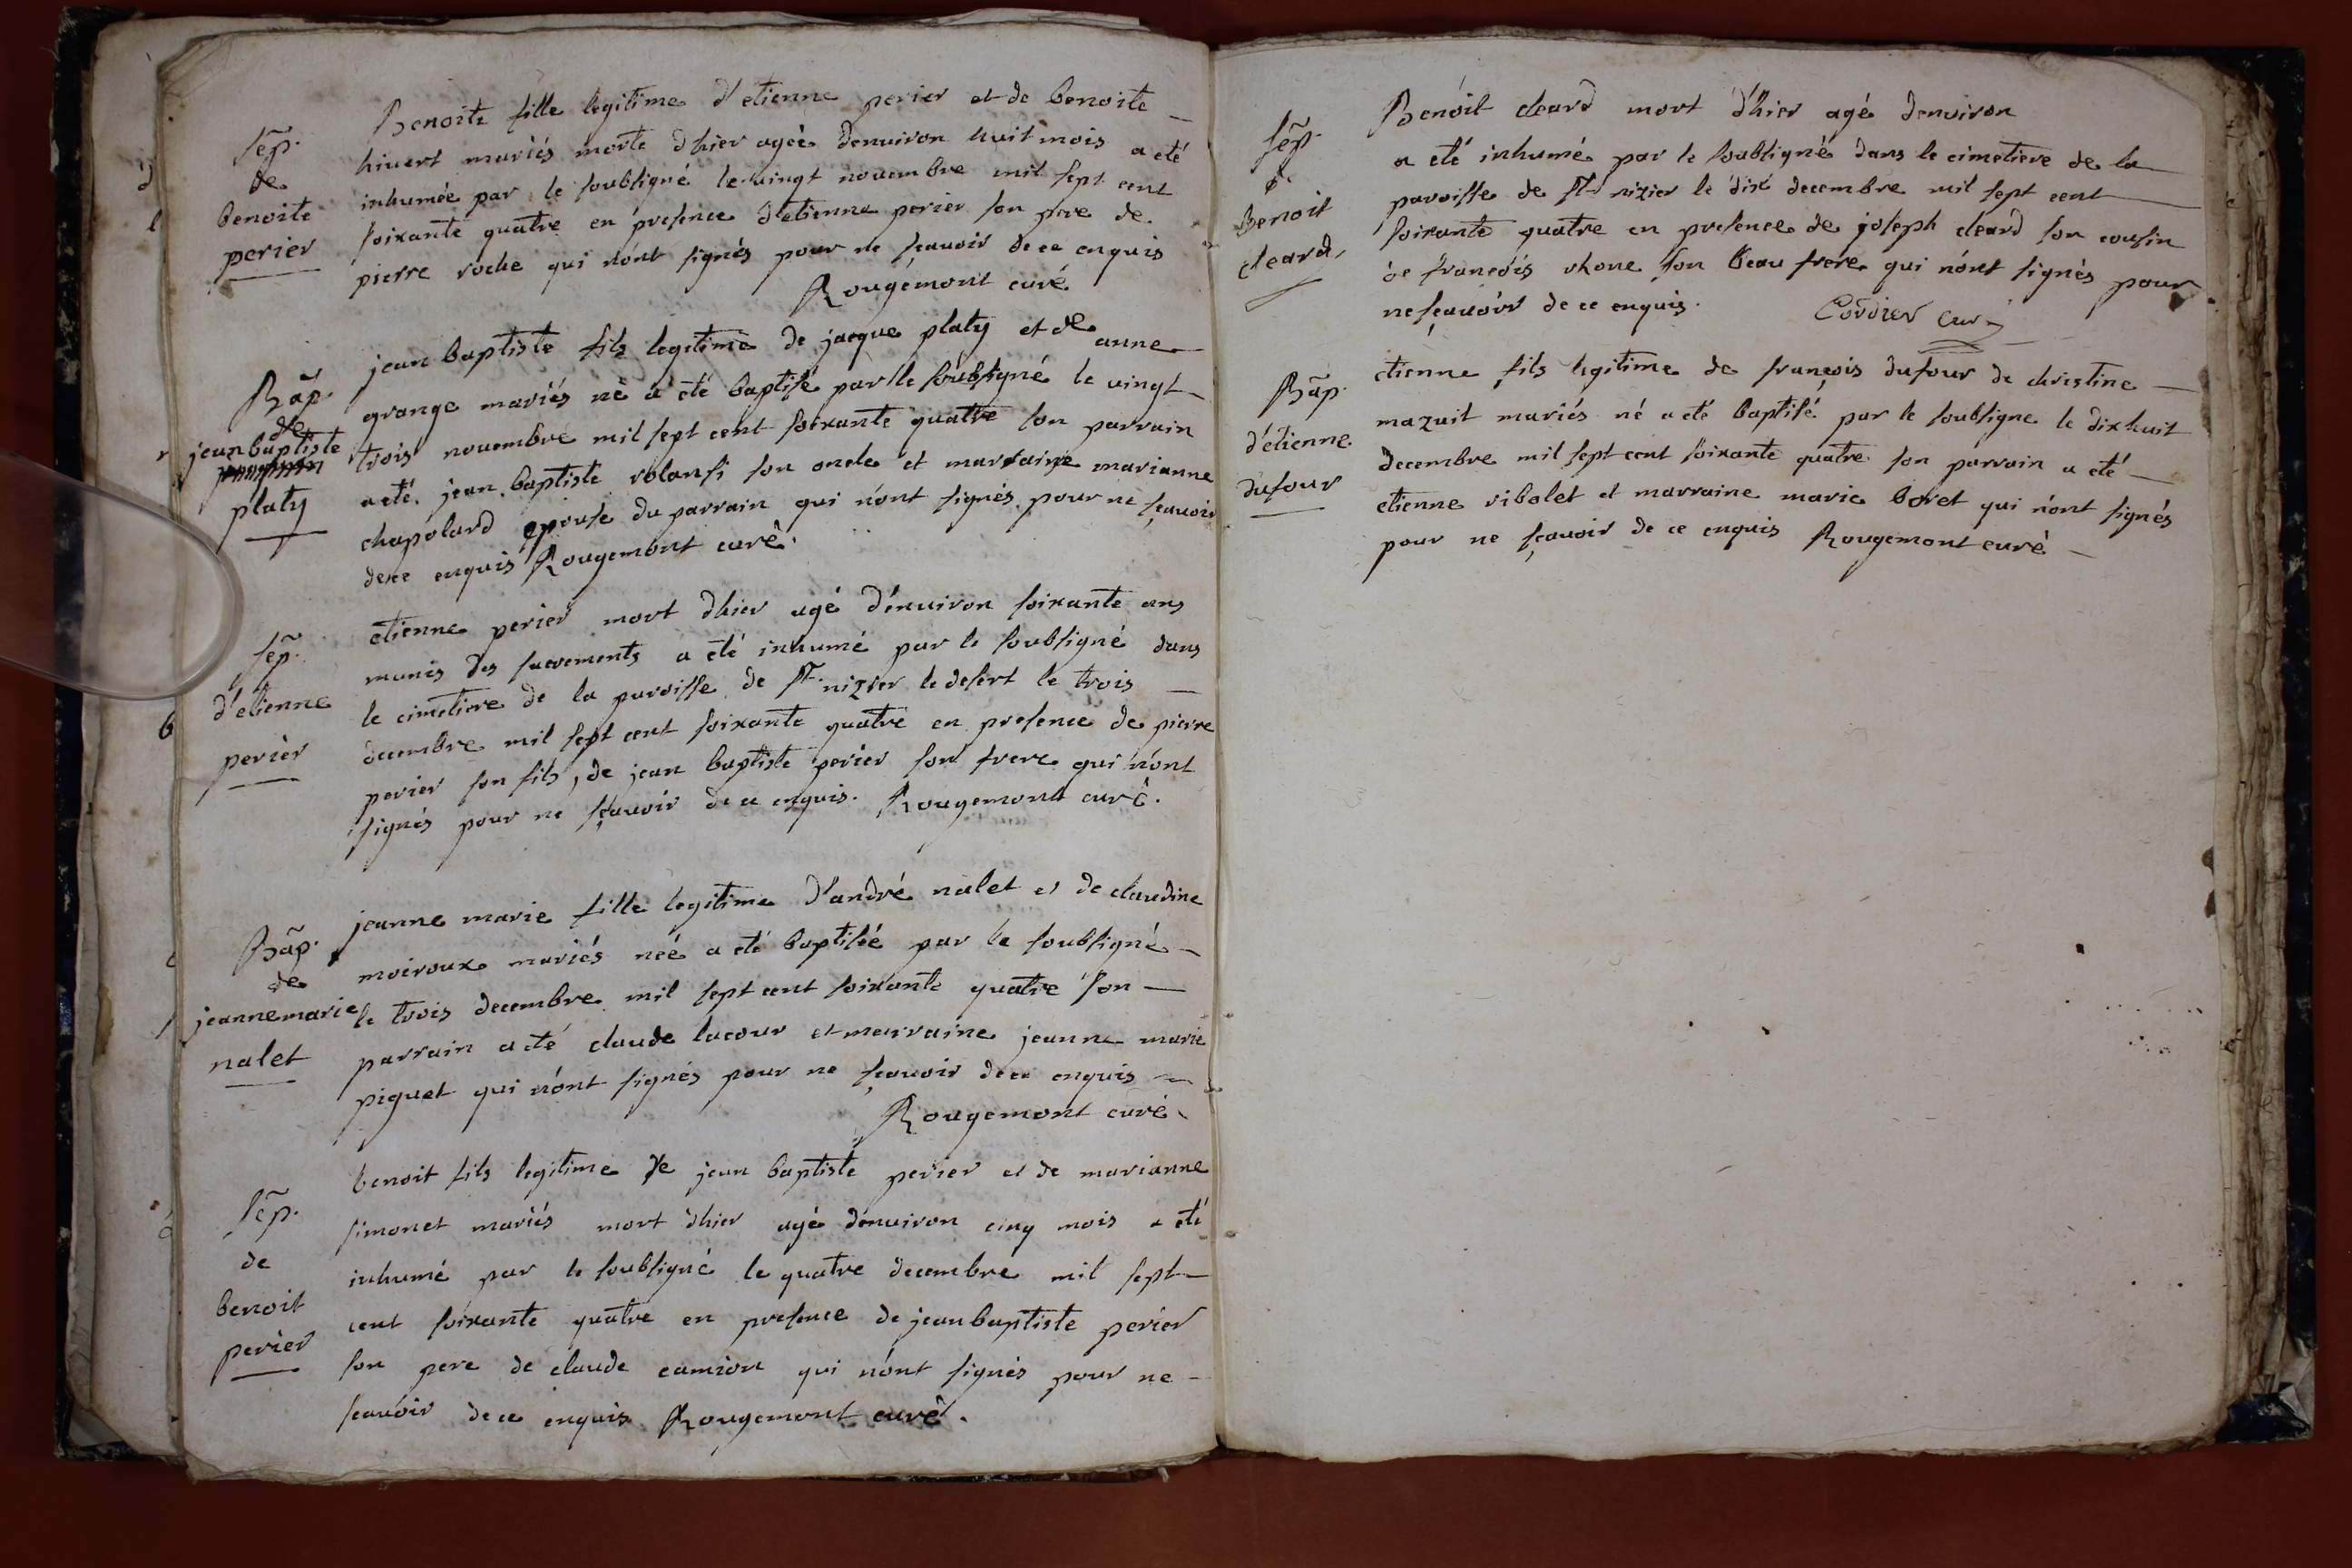 Sep.
de
benoite
perier
Benoite fille legitime d'etienne perier et de benoite
hivert mariés morte d'hier agée denuiron huit mois a eté
inhumée par le soubsigné le vingt nouembre mil sept cent
soixante quatre en presence d'etienne perier son pere de
pierre roche qui n'ont signés pour ne sçauoir de ce enquis
Rougemont curé
Bap.
de
jean baptiste
platy
jean baptiste fils legitime de jacque platy et de anne
grange mariés né a eté baptisé par le soubsigné le vingt
trois nouembre mil sept cent soixante quatre son parrain
a eté jean baptiste rolansi son oncle et marraine marianne
chapolard epouse du parrain qui n'ont signés pour ne sçauoir
de ce enquis Rougemont curé.
Sep.
d'etienne
perier
etienne perier mort d'hier agé d'enuiron soixante ans
munis des sacrements a eté inhumé par le soubsigné dans
le cimetiere de la paroisse de st. nizier le desert le trois
decembre mil sept cent soixante quatre en presence de pierre
perier son fils, de jean baptiste perier son frere qui n'ont
signés pour ne sçauoir de ce enquis. Rougemont curé.
Bap.
de
jeanne marie
nalet
jeanne marie fille legitime d'andré nalet et de claudine
moiroux mariés née a eté baptisée par le soubsigné
le trois decembre mil sept cent soixante quatre son
parrain a eté claude lacour et marraine jeanne marie
piguet qui n'ont signés pour ne sçauoir de ce enquis
Rougemont curé
Sep.
de
benoit
perier
benoit fils legitime de jean baptiste perier et de marianne
simonet mariés mort d'hier agé d'enuiron cinq mois a eté
inhumé par le soubsigné le quatre decembre mil sept
cent soixante quatre en presence de jean baptiste perier
son pere de claude camion qui n'ont signés pour ne
scauoir de ce enquis Rougemont curé.
Sep.
de
Benoit
cleard
Benoit cleard mort d'hier agé denuiron
a eté inhumé par le soubsigné dans le cimetiere de la
paroisse de st nizier le dix decembre mil sept cent
soixante quatre en presence de joseph cleard son cousin
de francois rhone son beau frere qui n'ont signés pour
ne sçauoir de ce enquis. Cordier Curé
Bap.
d'etienne
dufour
etienne fils legitime de francois dufour de christine
mazuit mariés né a eté baptisé par le soubsigne le dix huit
decembre mil sept cent soixante quatre son parrain a eté
etienne ribolet et marraine marie boret qui n'ont signés
pour ne sçauoir de ce enquis Rougemont curé